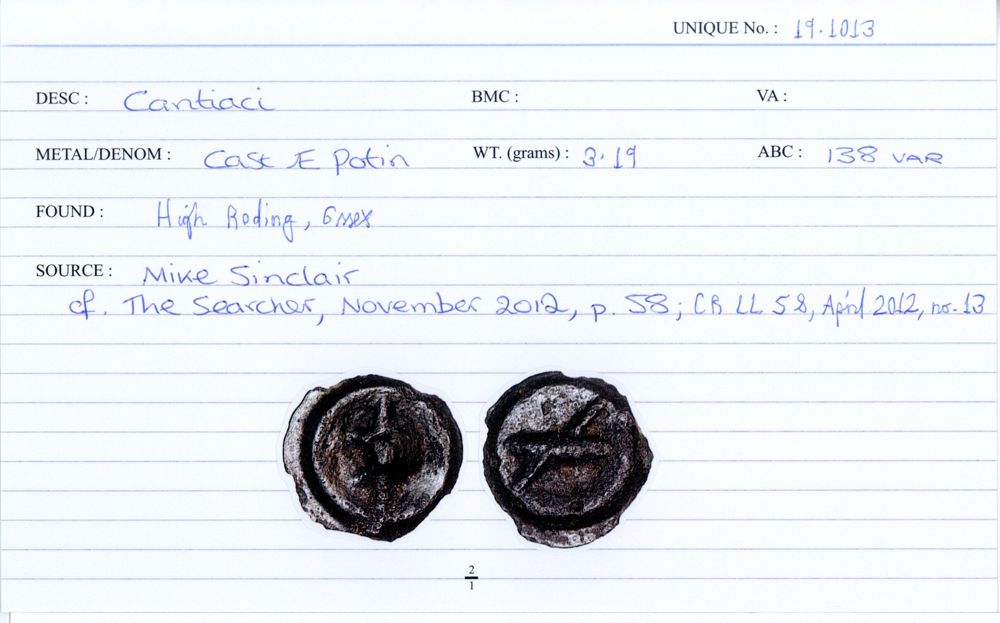 UNIQUE No. : 19.1013
DESC : Cantiaci BMC : VA :
METAL/DENOM : Cast Æ Potin WT. (grams) : 3.19 ABC : 138 VAR
FOUND : High Roding, Essex
SOURCE : Mike Sinclair
cf. The Searcher, November 2012, p. 58; CR LL 58, April 2012, no. 13
2
1